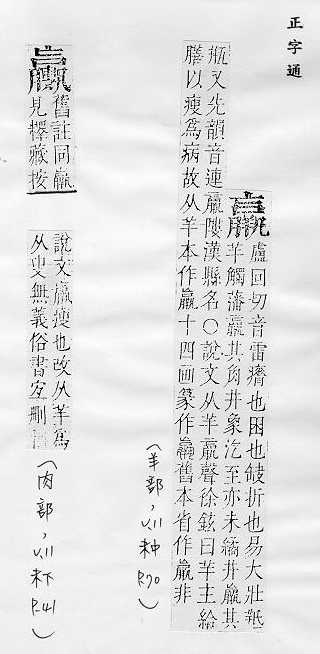 正字通
羸盧回切音雷瘠也困也折也易大壯羝
羊觸藩羸其角井象汔至亦未繘井羸其
瓶又先韻音連羸漢縣名○說文从羊𣎆聲徐鉉曰羊主給
膳以瘦爲病故从羊本作羸十四畫篆作羸舊本省作羸非
(羊部, V.11 未中 P.70)
舊註同羸
見釋藏按
說文羸瘦也改从羊爲
从叟無義俗書宜刪
(肉部, V.11 未下 P.41)